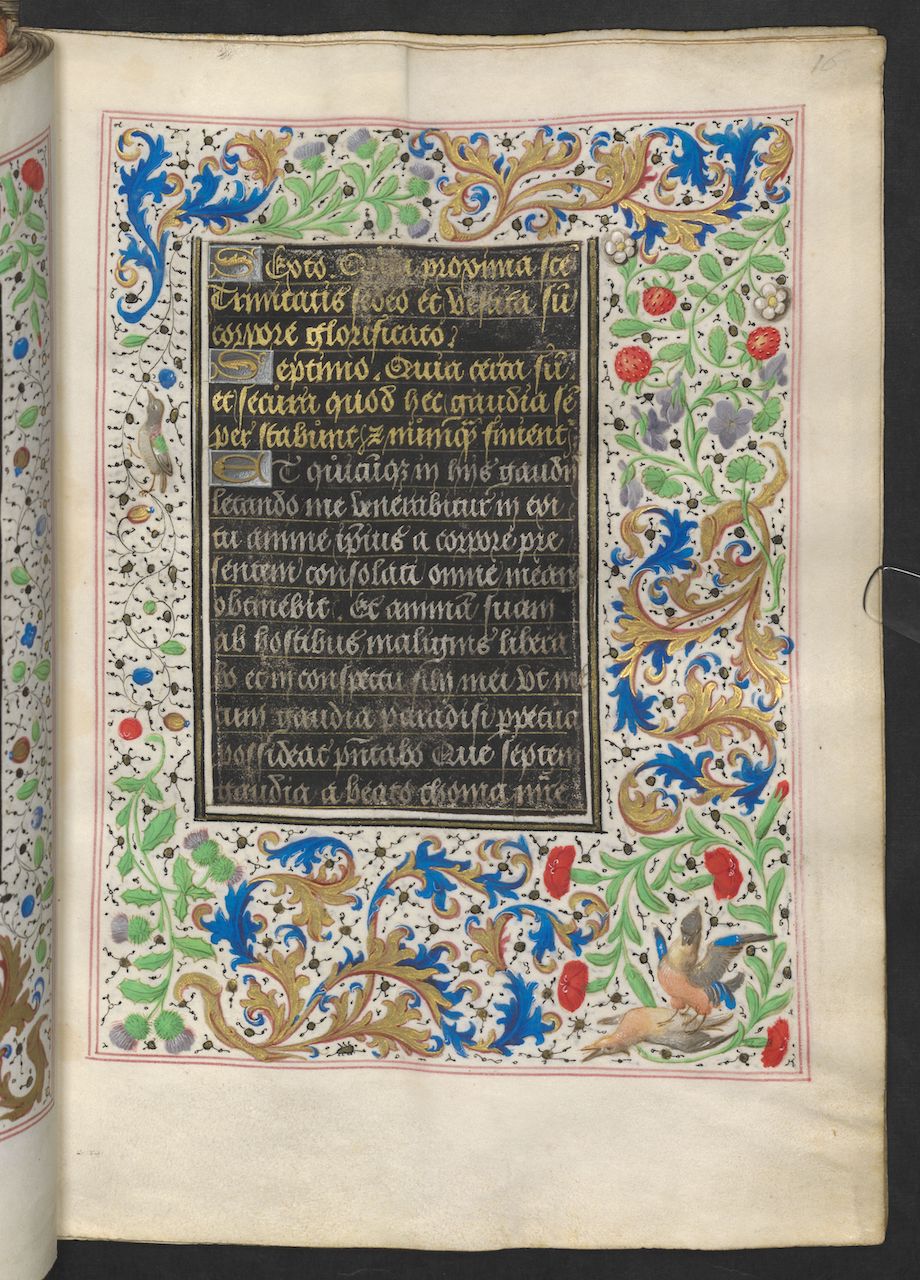 16
Sexto. Quia proxima scē
Trinitatis sedeo et vestita sū
corpore glorificato.
Septimo. Quia certa sū
et secura quod hec gaudia sē
per stabunt ⁊ nunqᷓ finient.
Et quicūqꝫ in hiis gaudijs
letando me venerabitur in exi
tu anime ip̄ius a corpore pre
sentem consolati onnē meam
obtinebit. Et animā suam
ab hostibus malignis libera
bo et in conspectu filij mei vt me
cum gaudia paradisi ꝑpetua
possideat pn̄tabo Que septem
gaudia a beato thoma